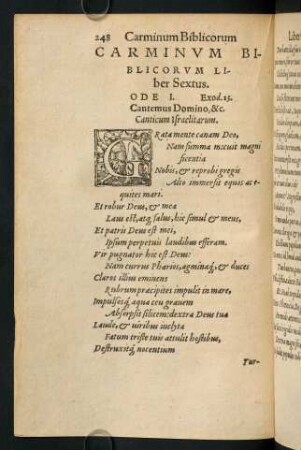 248 Carminum Biblicorum
CARMINVM BI-
BLICORVM LI-
ber Sextus.
ODE I. Exod. 15.
Cantemus Domino, &c.
Canticum Israelitarum.
GRata mente canam Deo,
Nam summa micuit magni
ficentia
Nobis, & reprobi gregis
Alto immersit equos ac e-
quites mari.
Et robur Deus, & mea
Laus est, atq; salus, hic simul & meus,
Et patris Deus est mei,
Ipsum perpetuis laudibus efferam.
Vir pugnator hic est Deus:
Nam currus Pharios, agminaq́, & duces
Claros illius eminens
Rubrum præcipites impulit in mare,
Impulsosq́ aqua ceu grauem
Absorpsit silicem: dextra Deus tua
Laude, & uiribus inclyta
Fatum triste tuis attulit hostibus,
Destruxitq́ nocentium
Tur-
Liber